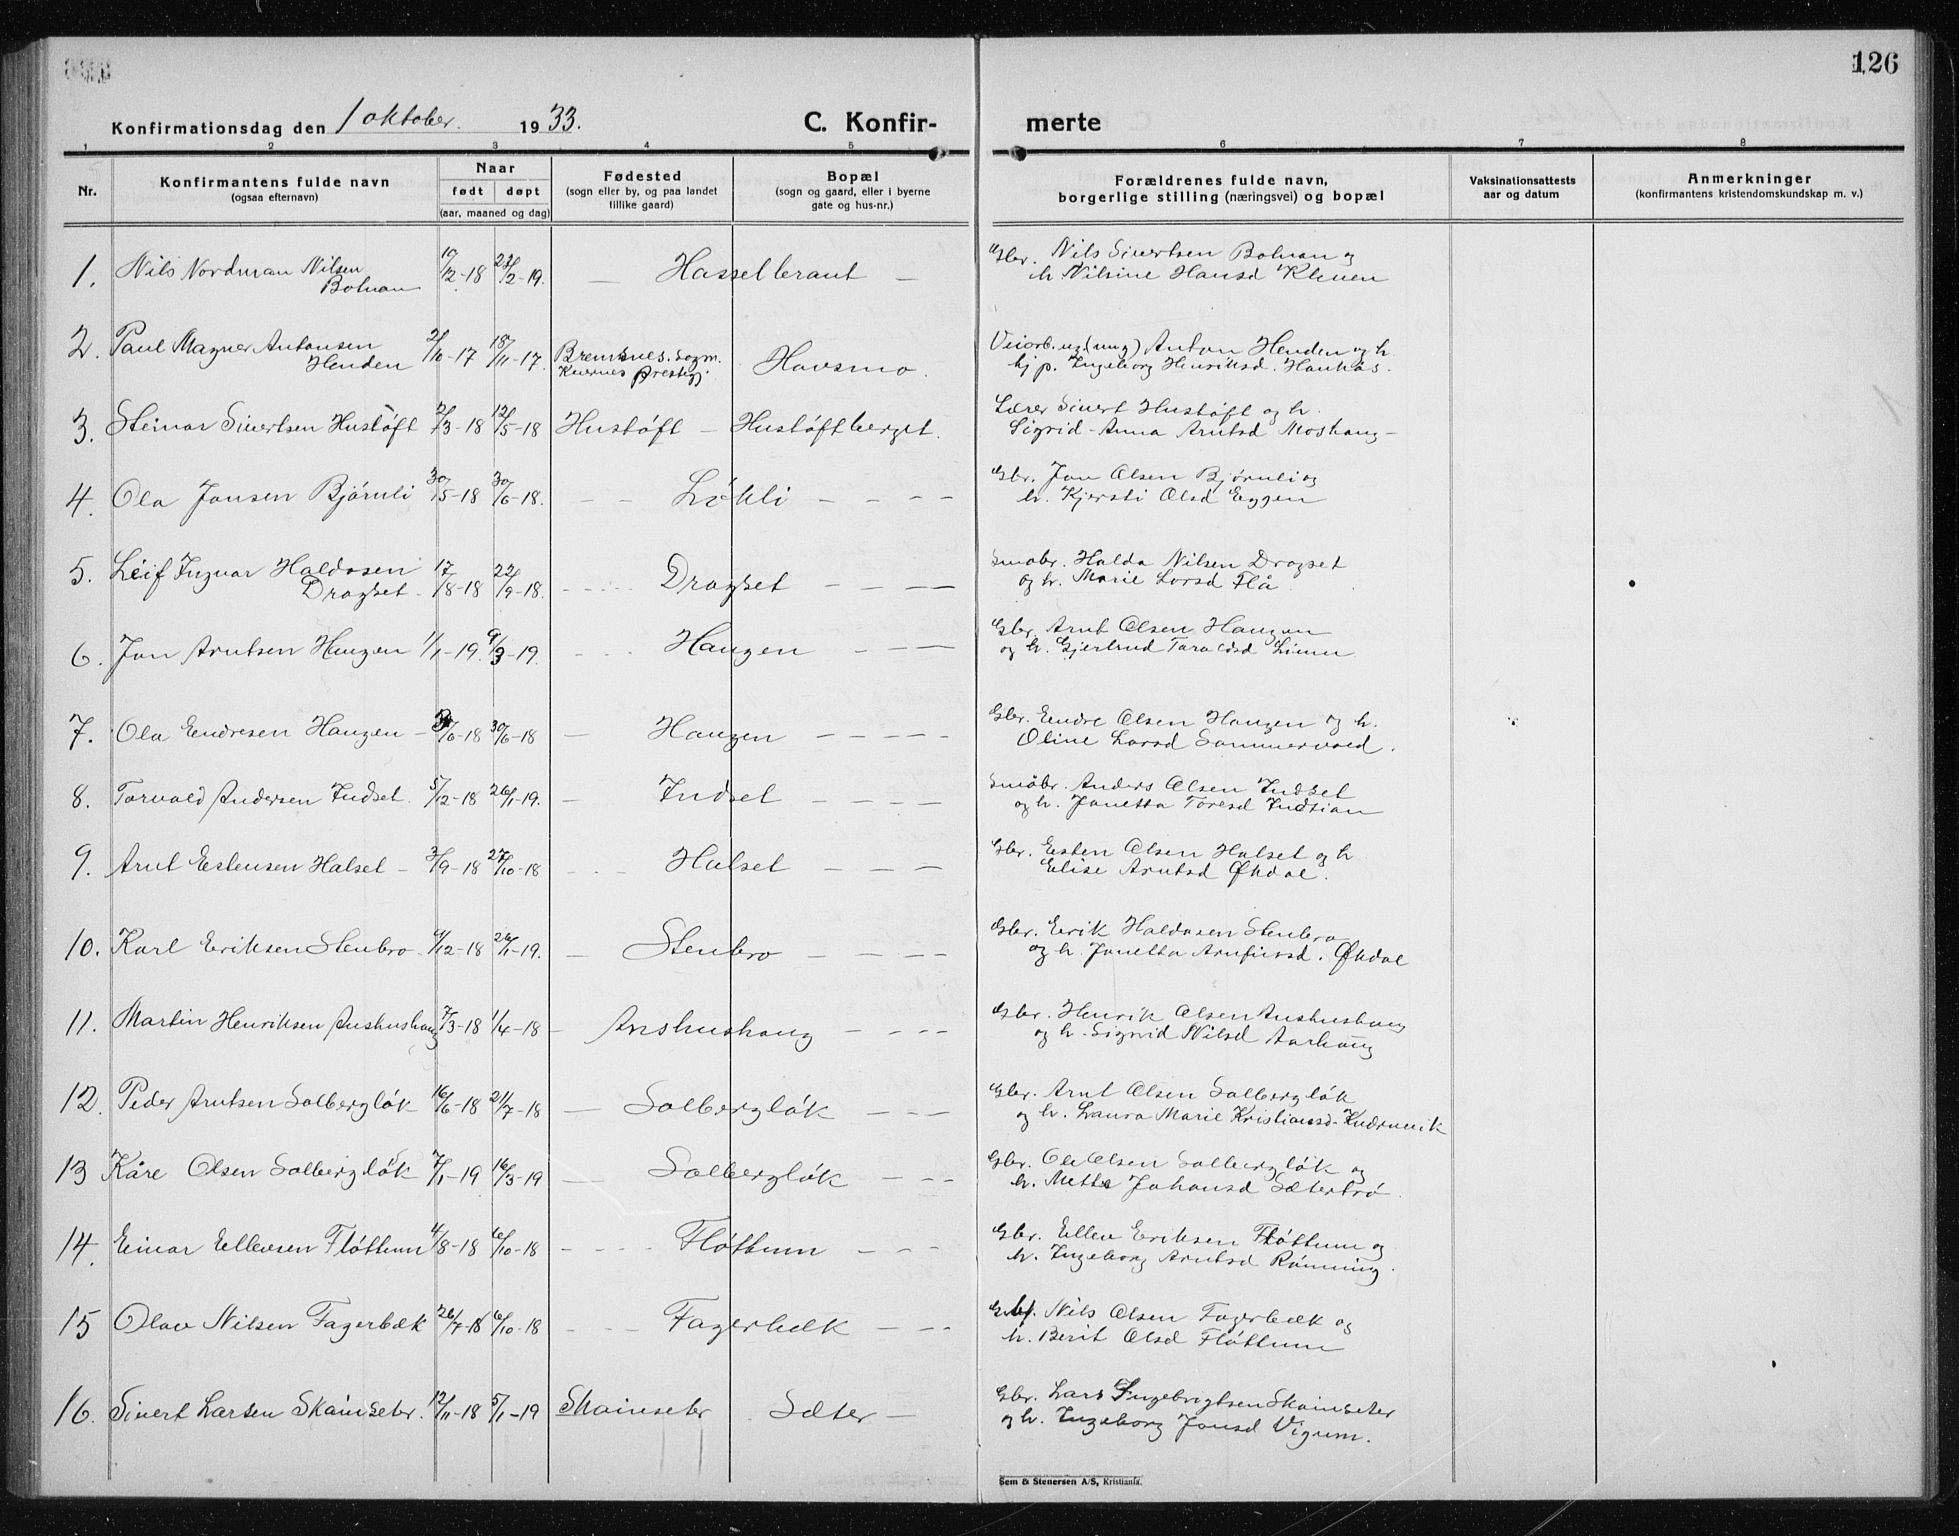 126
Konfirmationsdag den 1 oktober. 1933.
C. Konfir-
merte
1 2 3 4 5 6 7 8
Nr.
Konfirmantens fulde navn
(ogsaa efternavn)
Naar
født døpt
(aar, maaned og dag)
Fødested
(sogn eller by, og paa landet
tillike gaard)
Bopæl
(sogn og gaard, eller i byerne
gate og hus-nr.)
Forældrenes fulde navn,
borgerlige stilling (næringsvei) og bopæl
Vaksinationsattests
aar og datum
Anmerkninger
(konfirmantens kristendomskundskap m. v.)
1. Nils Nordman Nilsen 10/12-18 23/2-19. — Hasselbraut —
Bolman
Gbr. Nils Sivertsen Bolman og
h. Nilsine Hansd Kleven
2. Paul Magner Antonsen 2/10-17 18/11-17. Bremsnes. sogn. Havsmo.
Henden Kvernes prestegj.
Veiarb. ug (ung) Anton Henden og h.
hj p. Ingeborg Henriksd. Haukås.
3. Steinar Sivertsen Hustøft 2/3-18 12/5-18 Hustøft — Hustøftberget.
Lærer Sivert Hustøft og h.
Sigrid-Anna Arntsd Moshaug —
4. Ola Jonsen Bjørnli 30/5-18 30/6-18. — — Løkli — — — —
Gbr. Jon Olsen Bjørnli og
h. Kjersti Olsd Eggen
5. Leif Ingvar Haldosen 17/8-18 22/9-18. Dragset — — —
Dragset
Småbr. Halda Nilsen Dragset
og h. Marie Larsd Flå.
6. Jon Arntsen Haugen 1/1-19. 9/3-19. Haugen — — —
Gbr. Arnt Olsen Haugen
og h. Gjertrud Toraldsd Limm
7. Ola Endresen Haugen — /6-18 30/6-18 — Haugen — — — — —
Gbr. Endre Olsen Haugen og h.
Oline Larsd Sommervold.
8. Torvald Andersen Indset. 5/12-18 26/1-19. — Indset — — — —
Småbr. Anders Olsen Indset
og h. Jonetta Toresd Indsian
9. Arnt Estensen Halset — 3/9-18 27/10-18 Halset — — — —
Gbr. Esten Olsen Halset og h
Elise Arntsd Økdal.
10. Karl Eriksen Stenbro. 6/12-18 26/1-19. — Stenbro — — — —
Gbr. Erik Haldosen Stenbro
og h. Jonetta Arnfinsd. Økdal
11. Martin Henriksen Anshushaug 7/3-18 1/4-18 — Anshushaug — — — —
Gbr. Henrik Olsen Anshushaug
og h. Sigrid Nilsd Aarhaug
12. Peder Arntsen Solbergløk 16/6-18 21/7-18 — Solbergløk — — —
Gbr. Arnt Olsen Solbergløk
og h. Laura Marie Kristiansd-Kværnvik
13 Kåre Olsen Solbergløk 7/1-19 16/3-19 — Solbergløk — — —
Gbr. Ole Olsen Solbergløk og
h. Mette Johansd Sæterbrø.
14. Einar Ellevsen Fløttum 4/8-18 6/10-18 Fløttum — — —
Gbr. Ellev Eriksen Fløttum og
h. Ingeborg Arntsd Rønning.
15 Olav Nilsen Fagerbæk 26/7-18 6/10-18 Fagerbæk — — —
Gbr. Nils Olsen Fagerbæk og
h. Berit Olsd Fløttum
16. Sivert Larsen Skamseter. 12/11-18 5/1-19 Skamseter Sæter —
Gbr. Lars Ingebrigtsen Skamseter
og h. Ingeborg Jonsd Vigum.
Sem & Stenersen A/S, Kristiania.